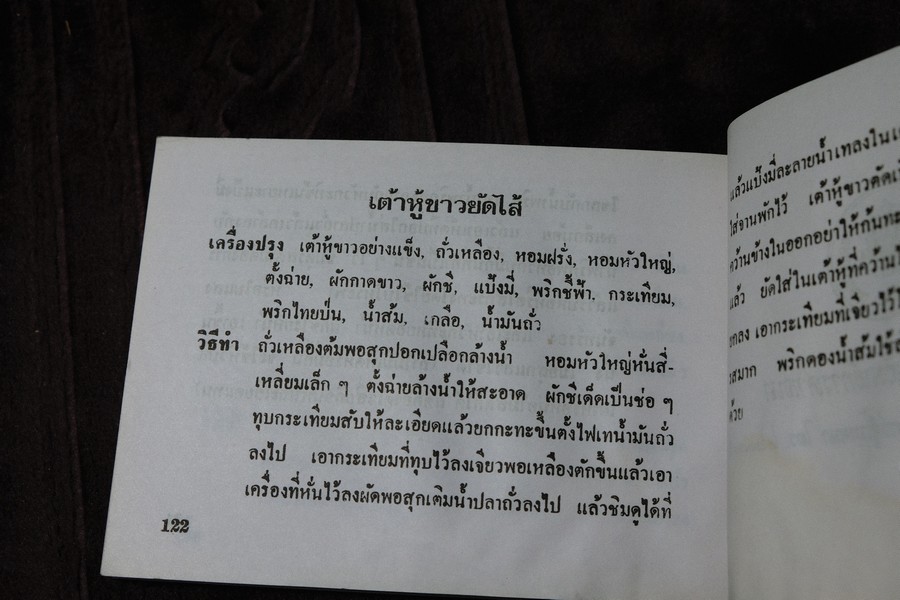 เต้าหู้ขาวยัดไส้
เครื่องปรุง เต้าหู้ขาวอย่างแข็ง, ถั่วเหลือง, หอมฝรั่ง, หอมหัวใหญ่,
ตั้งฉ่าย, ผักกาดขาว, ผักชี, แป้งมี่, พริกชี้ฟ้า. กระเทียม,
พริกไทยป่น, น้ำส้ม, เกลือ, น้ำมันถั่ว
วิธีทำ ถั่วเหลืองต้มพอสุกปอกเปลือกล้างน้ำ หอมหัวใหญ่หั่นสี่-
เหลี่ยมเล็ก ๆ ตั้งฉ่ายล้างน้ำให้สะอาด ผักชีเด็ดเป็นช่อ ๆ
ทุบกระเทียมสับให้ละเอียดแล้วยกกะทะขึ้นตั้งไฟเทน้ำมันถั่ว
ลงไป เอากระเทียมที่ทุบไว้ลงเจียวพอเหลืองตักขึ้นแล้วเอา
เครื่องที่หั่นไว้ลงผัดพอสุกเติมน้ำปลาถั่วลงไป แล้วชิมดูได้ที่
122
แล้วแป้งมี่ละลายน้ำเทลงใน
ใส่จานพักไว้ เต้าหู้ขาวตัด
คว้านข้างในออกอย่าให้ก้นทะ
แล้ว ยัดใส่ในเต้าหู้ที่คว้าน
ยกลง เอากระเทียมที่เจียวไว้
รสมาก พริกดองน้ำส้มใช้
ด้วย